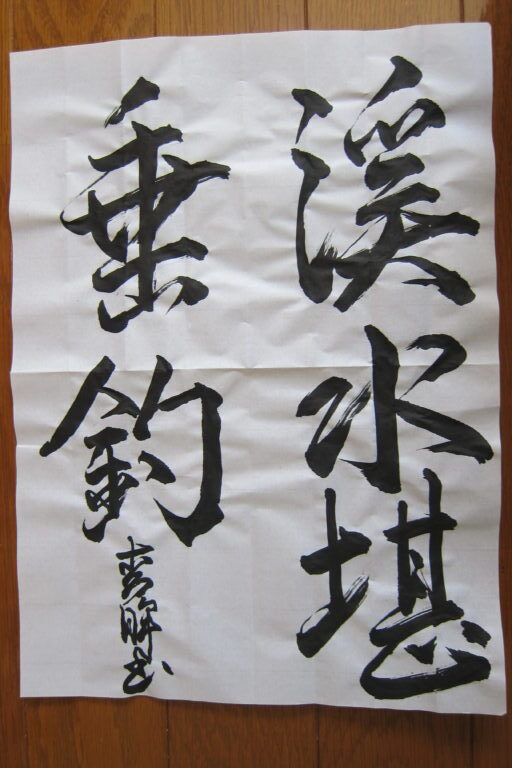 渓水堪
垂釣